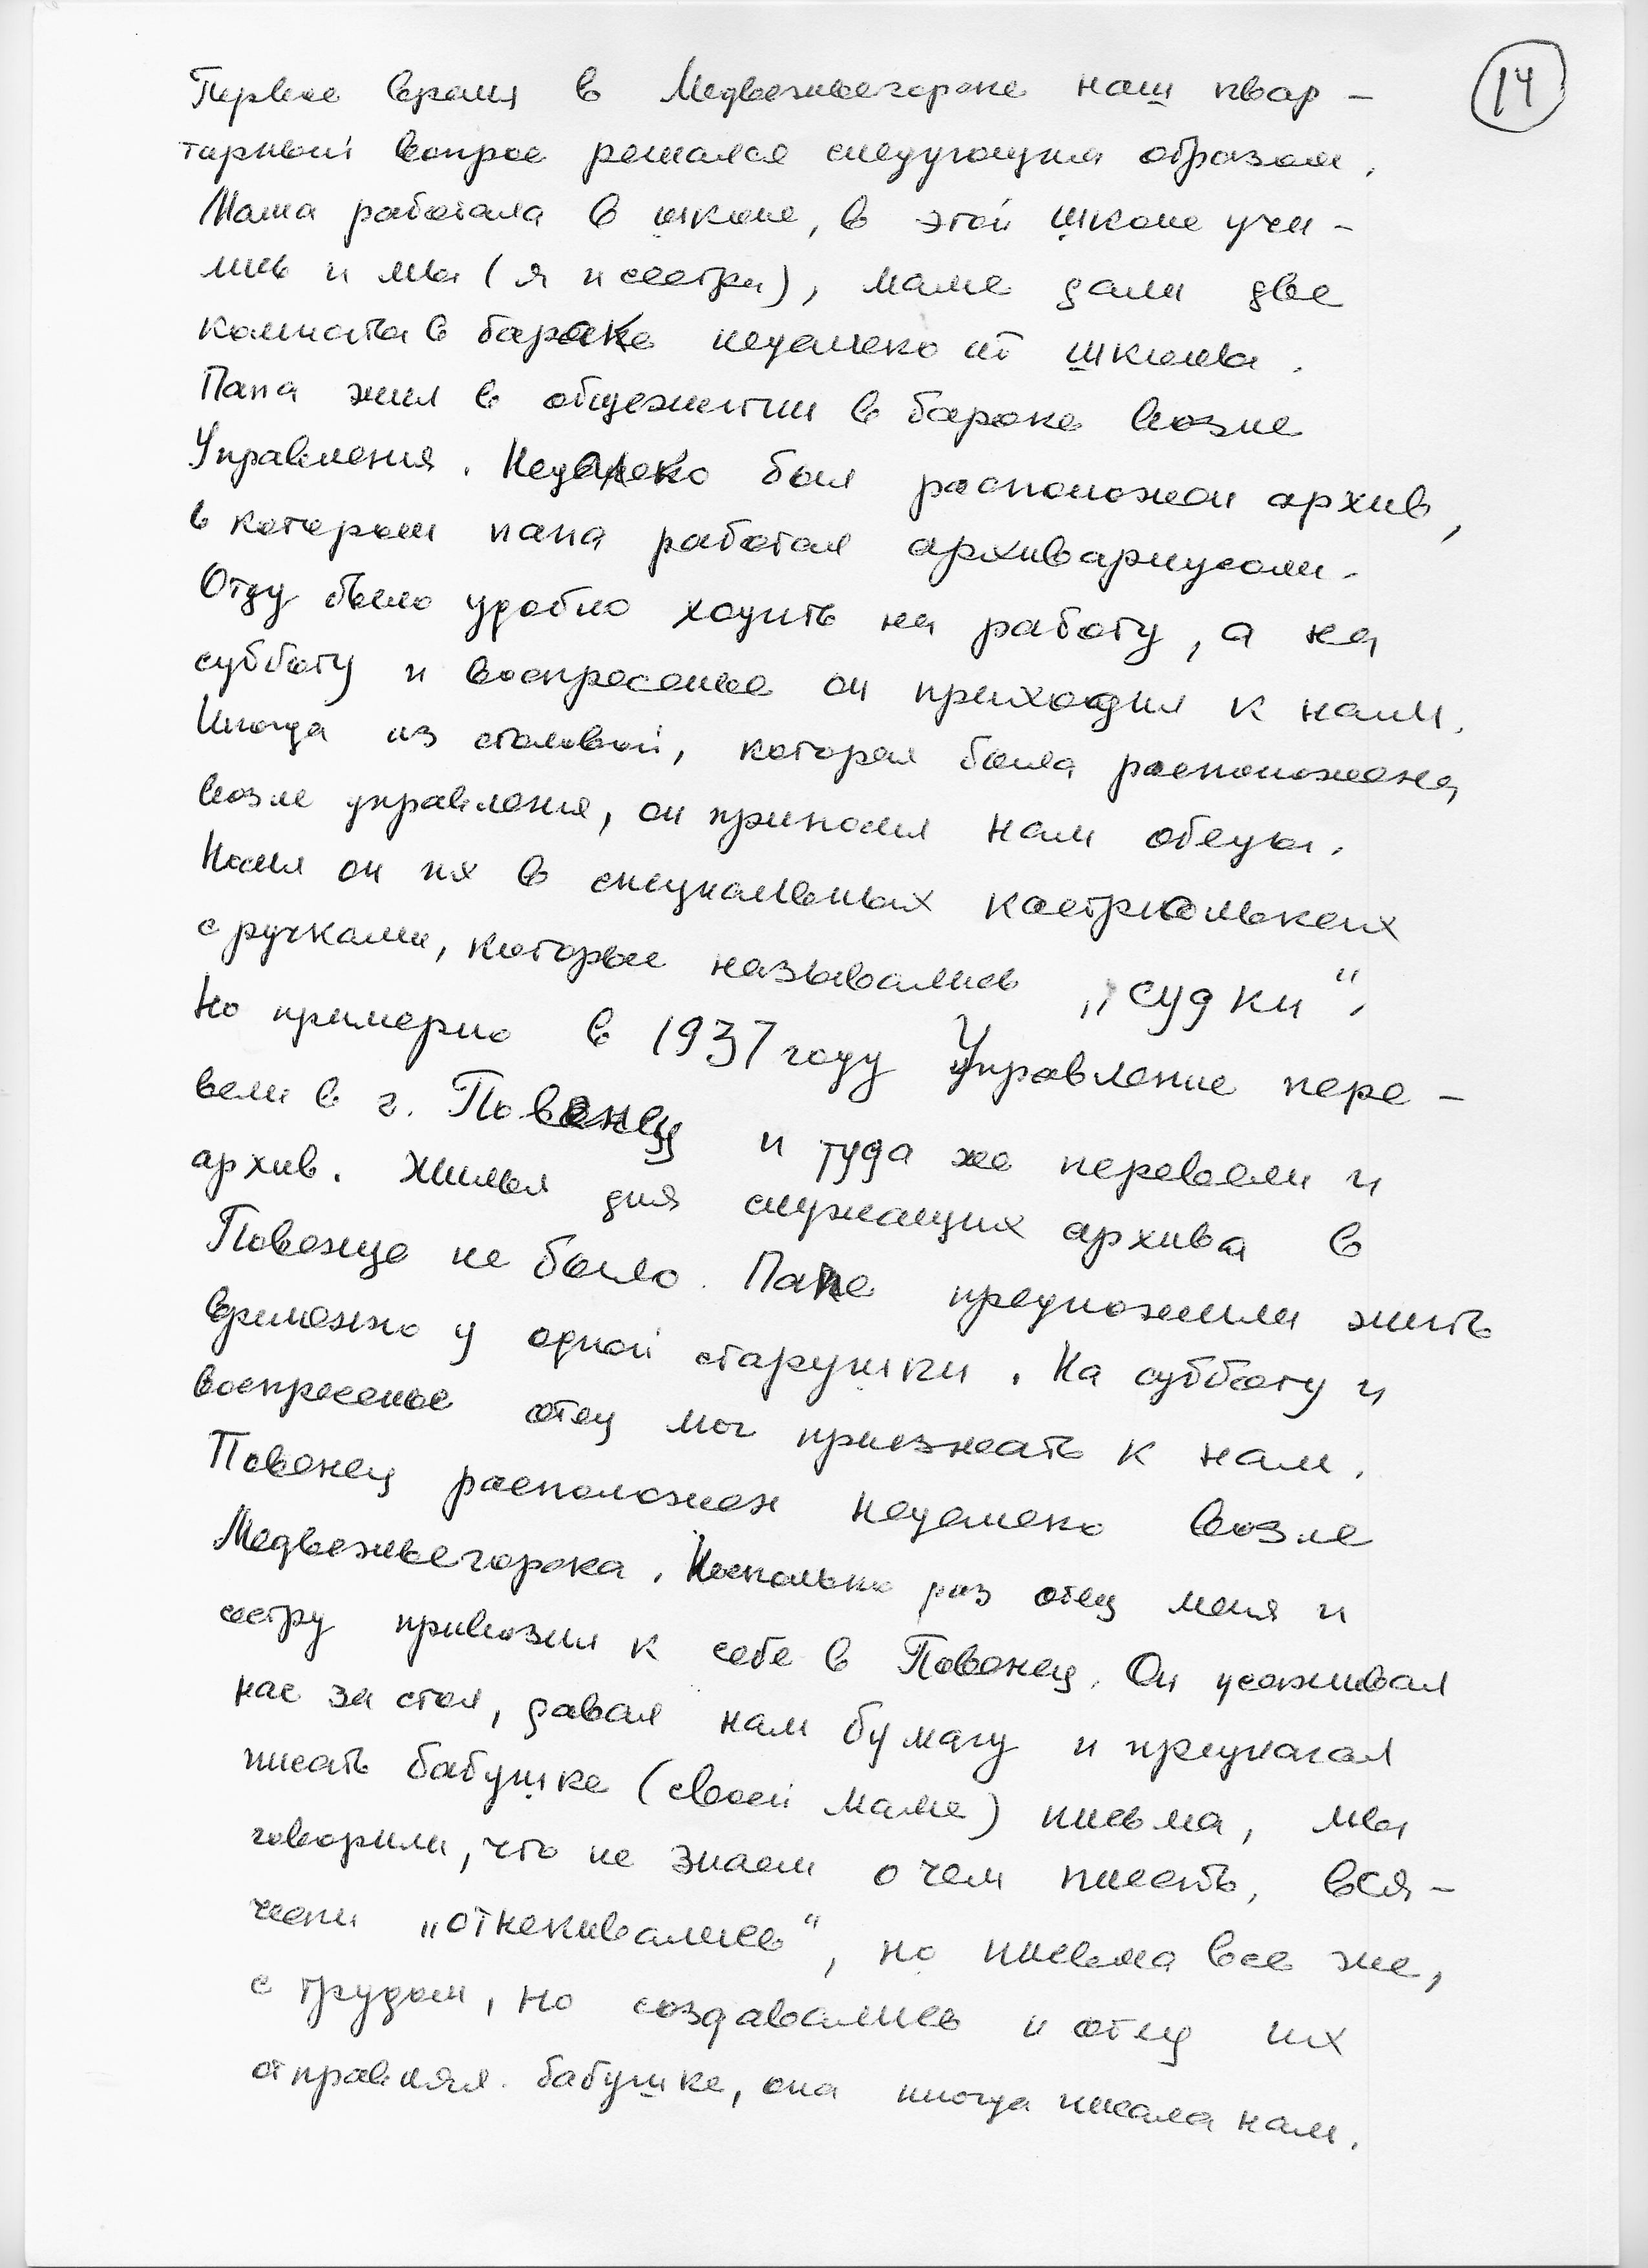 14
Первое время в Медвежьегорске наш квар-
тирный вопрос решался следующим образом.
Мама работала в школе, в этой школе учи-
лись и мы (я и сестра), маме дали две
комнаты в бараке недалеко от школы.
Папа жил в общежитии в бараке возле
Управления. Недалеко был расположен архив,
в котором папа работал архивариусом.
Отцу было удобно ходить на работу, а на
субботу и воскресенье он приходил к нам.
Иногда из столовой, которая была расположена,
возле управления, он приносил нам обеды.
Носил он их в специальных кастрюльках
с ручками, которые назывались „судки“.
Но примерно в 1937 году Управление пере-
вели в г. Повенец и туда же перевели и
архив. Жилья для служащих архива в
Повенце не было. Папе предложили жить
временно у одной старушки. На субботу и
воскресенье отец мог приезжать к нам.
Повенец расположен недалеко возле
Медвежьегорска. Несколько раз отец меня и
сестру привозил к себе в Повенец. Он усаживал
нас за стол, давал нам бумагу и предлагал
писать бабушке (своей маме) письма, мы
говорили, что не знаем о чем писать, вся-
чески „отнекивались“, но письма все же,
с трудом, но создавались и отец их
отправлял бабушке, она иногда писала нам.